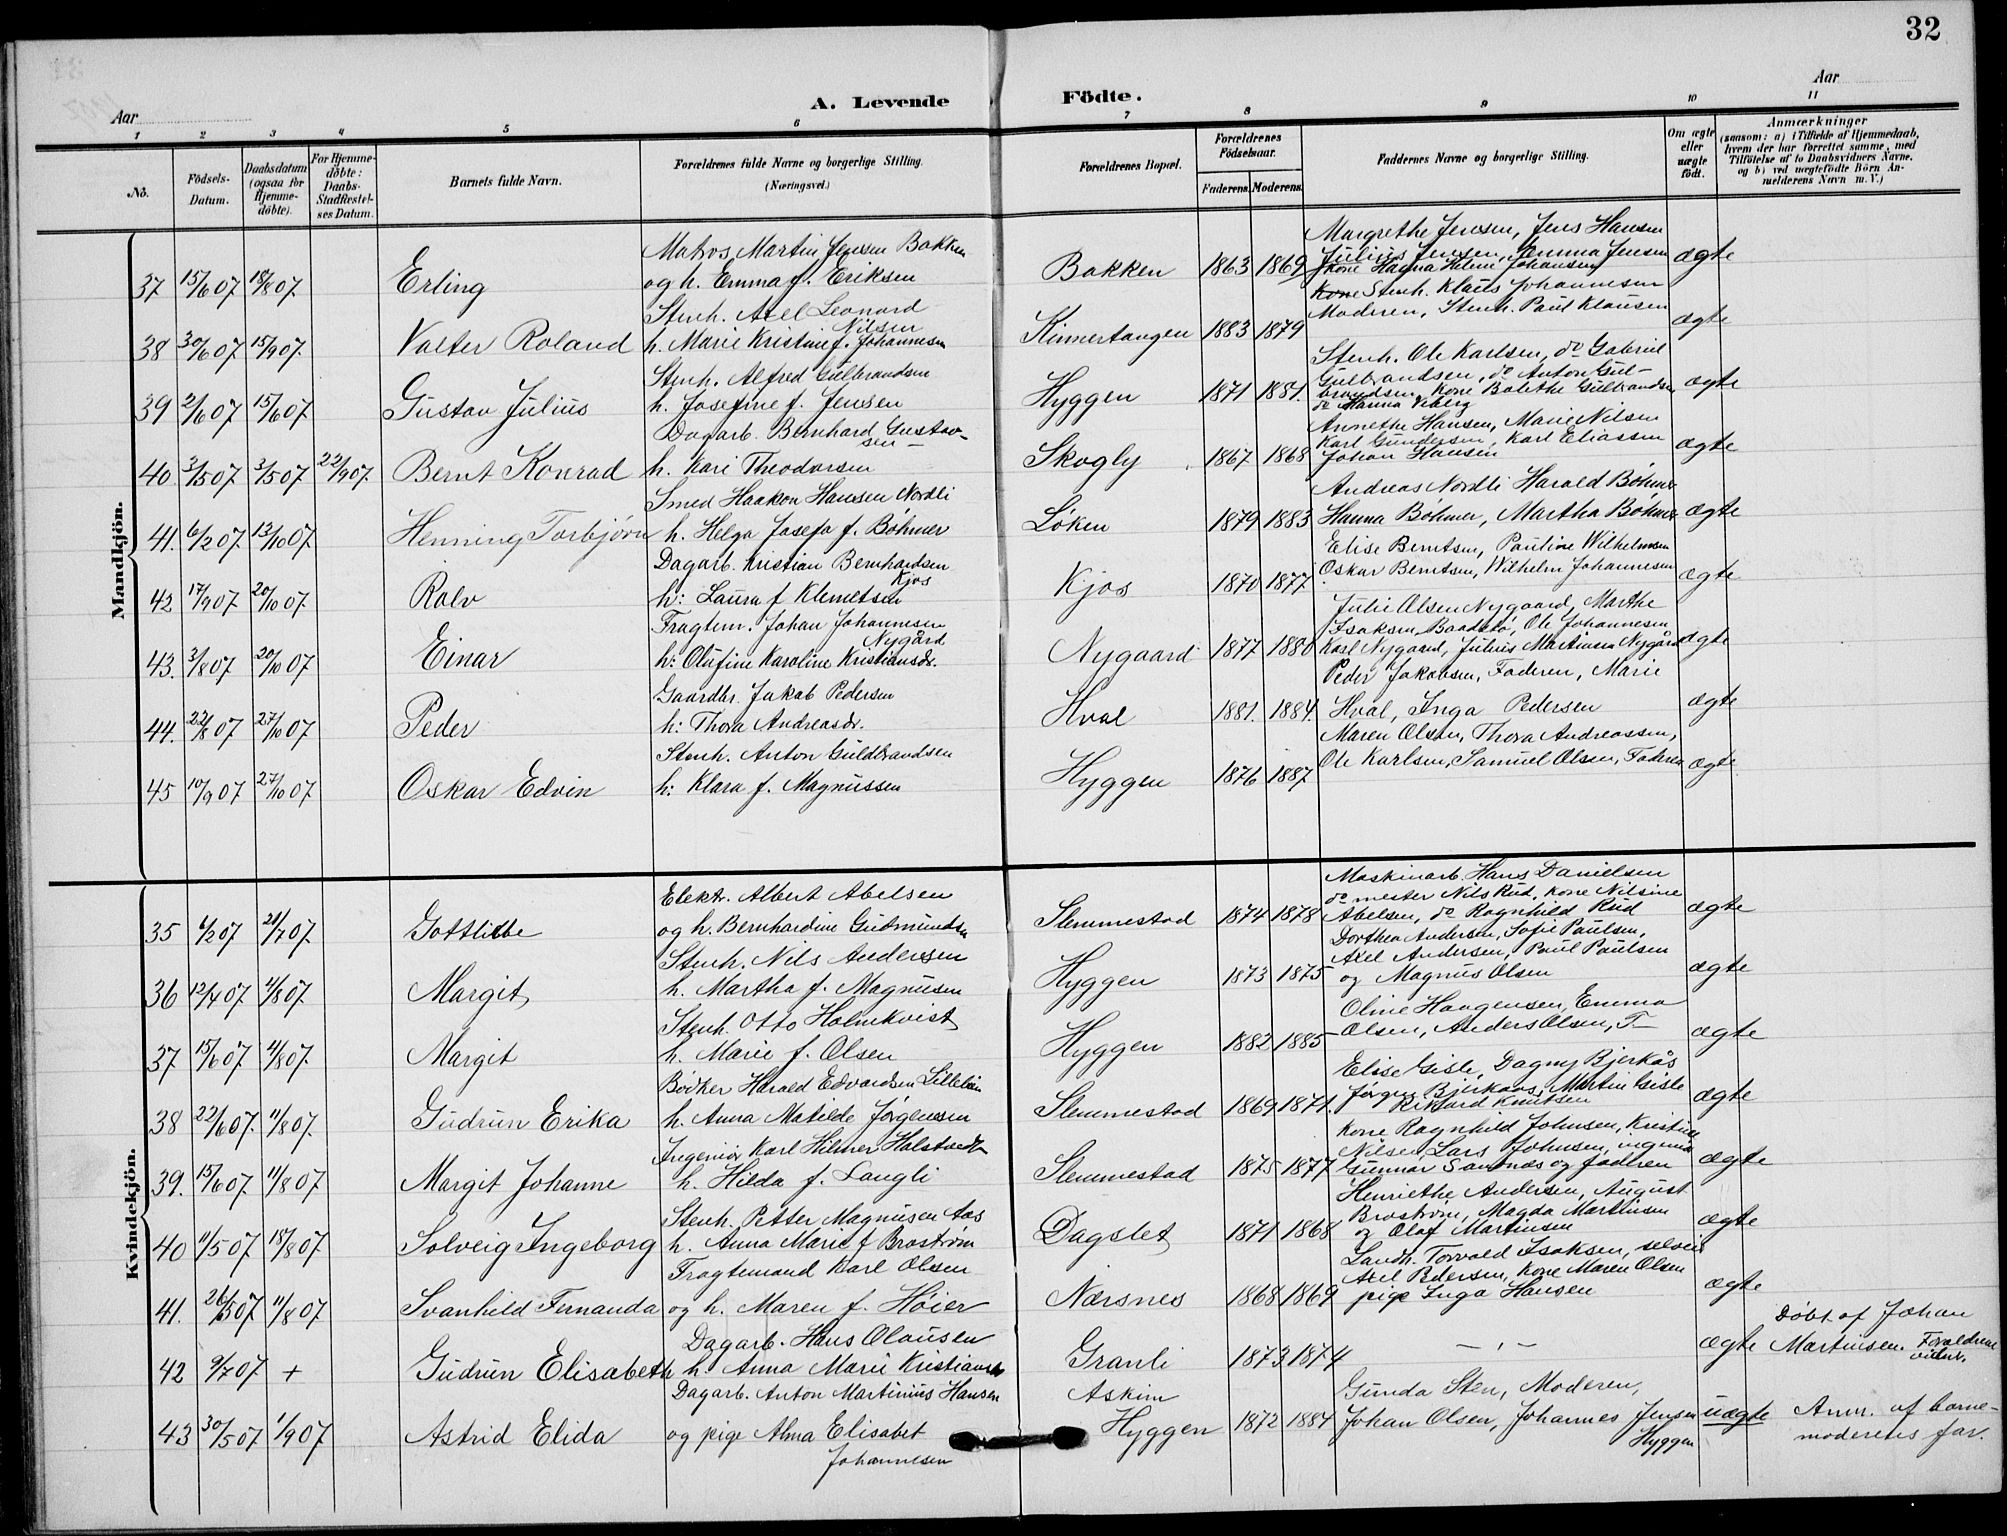 32
Aar
A. Levende Födte.
Aar
1 2 3 4 5 6 7 8 9 10 11
No.
Födsels-Datum.
Daabsdatum (ogsaa for Hjemme-döbte).
For Hjemme-döbte: Daabs-Stadfæstel-ses Datum.
Barnets fulde Navn.
Forældrenes fulde Navne og borgerlige Stilling.
(Næringsvei.)
Forældrenes Bopæl.
Forældrenes Födselsaar.
Faderens. Moderens.
Faddernes Navne og borgerlige Stilling.
Om ægte eller uægte födt.
Anmærkninger
(saasom: a) i Tilfælde af Hjemmedaab,
hvem der har forrettet samme, med
Tilföielse af to Daabsvidners Navne.
og b) ved uægtefödte Börn An-
melderens Navn m. V.)
Mandkjön.
Matros Martin Jenssen Bakken
Margrethe Jensen, Jens Hansen
37 15/6 07 18/8 07. Erling og h. Emma f. Eriksen Bakken 1863 1869 Julius Jensen, Emma Jensen ægte
Kone Hagna Helene Johansen
Stenh. Axel Leonard Nilsen
Stenh. Klaus Johannesen
38 30/6 07 15/9 07. Valter Roland h. Marie Kristine f. Johannesen Kinnertangen 1883 1879 Moderen, Stenh. Paul Klausen ægte
Stenh. Alfred Gulbrandsen
Stenh. Ole Karlsen, do Gabriel
39 2/6 07 15/6 07. Gustav Julius h. Josefine f. Jensen Hyggen 1871 1881. Gulbrandsen, do Anton Gul- ægte
brandsen, Kone Bolethe Gulbrandsen
do Hanna Viberg
Dagarb. Bernhard Gustav-sen
Annethe Hansen, Marie Nilsen
40 3/5 07 3/5 07 22/9 07. Bernt Konrad h. Kari Theodorsen Skogly 1867 1868 Karl Gundersen, Karl Eliassen ægte
Johan Hansen
Smed Haakon Hansen Nordli
Andreas Nordli Harald Böhmer
41. 6/2 07. 13/10 07. Henning Torbjörn h. Helga Josefa f. Böhmer Löken 1879 1883 Hanna Böhmer, Martha Böhmer ægte
Dagarb. Kristian Bernhardsen Kjos
Elise Berntsen, Pauline Wilhelmsen
42 17/9 07 20/10 07. Rolv h: Laura f Klemetsen Kjos 1870 1877 Oskar Berntsen, Wilhelm Johannesen ægte
Fragtem. Johan Johannesen Nygård
Julie Olsen Nygaard, Marthe
Isaksen, Ole Johannesen
43. 3/8 07 20/10 07 Einar h: Olufine Karoline Kristiansdr. Nygaard 1877 1880 Karl Nygaard, Julius Martinsen Nygård ægte
Gaardbr. Jakob Pedersen
Peder Jakobsen, Faderen, Marie
44. 22/8 07 27/10 07 Peder h: Thora Andreasdr. Hval 1881. 1884. Hval, Inga Pedersen ægte
Stenh. Anton Guldbrandsen
Maren Olsen, Thora Andreassen,
45 10/9 07 27/10 07 Oskar Edvin h: Klara f. Magnussen Hyggen 1876 1887 Ole Karlsen, Samuel Olsen, Faderen ægte
Kvindekjön.
Elekt. Albert Abelsen
Maskinarb. Hans Danielsen
do mester Nils Rud, kone Nilsine
35 6/2 07 21/7 07. Gottlibe og h. Bernhardine Gudmundsn Slemmestad 1874 1878 Abelsen, do Ragnhild Rud ægte
Stenh. Nils Andersen
Dorthea Andersen, Sofie Paulsen,
Axel Andersen, Paul Paulsen
36 12/4 07 11/8 07. Margit h. Martha f. Magnusen Hyggen 1873 1875 og Magnus Olsen ægte
Stenh. Otto Holmkvist
Oline Haagensen, Emma
37 15/6 07 11/8 07. Margit h. Marie f. Olsen Hyggen 1882 1885 Olsen, Anders Olsen, F— ægte
Bödker Harald Edvardsen
Elise Gisle, Dagny Bjerkås
38 22/6 07. 11/8 07. Gudrun Erika h. Anna Matilde Jörgensen Slemmestad 1869 1871. Jörgen Bjerkaas, Martin Gisle ægte
Rikhard Knutsen
Ingeniör Karl Hilmer Halstvedt
Kone Ragnhild Johnsen, Kristine
Nilsen, Lars Johnsen, ingeniör
39. 15/6 07. 11/8 07 Margit Johanne h. Hilda f. Langli Slemmestad 1875 1877 Gunnar Sandnæs og faderen ægte
Stenh. Petter Magnusen Aas
Henriethe Andersen, August
Broström, Magda Martinsen
40 11/5 07 18/8 07 Solveig Ingeborg h. Anna Marie f Broström Dagslet 1871 1868 og Olaf Martinsen ægte
Fragtemand Karl Olsen
Landh. Torvald Isaksen, selveier
Axel Pedersen, Kone Maren Olsen
41. 26/5 07 11/8 07 Svanhild Fernanda og h. Maren f. Höier Nærsnes 1868 1869 pige Inga Hansen ægte
Dagarb. Hans Olausen
Döbt af Johan
42 9/7 07 + Gudrun Elisabeth h. Anna Marie Kristiansdr Granli 1873 1874 — „ — ægte Martinsen. Forældrene vidner.
Dagarb. Anton Martinius Hansen
Askim
Gunda Sten, Moderen,
43 30/5 07 1/9 07 Astrid Elida og pige Alma Elisabet Johannesen Hyggen 1872 1884 Johan Olsen, Johannes Jensen Hyggen uægte Anm. af barne-
moderens far.